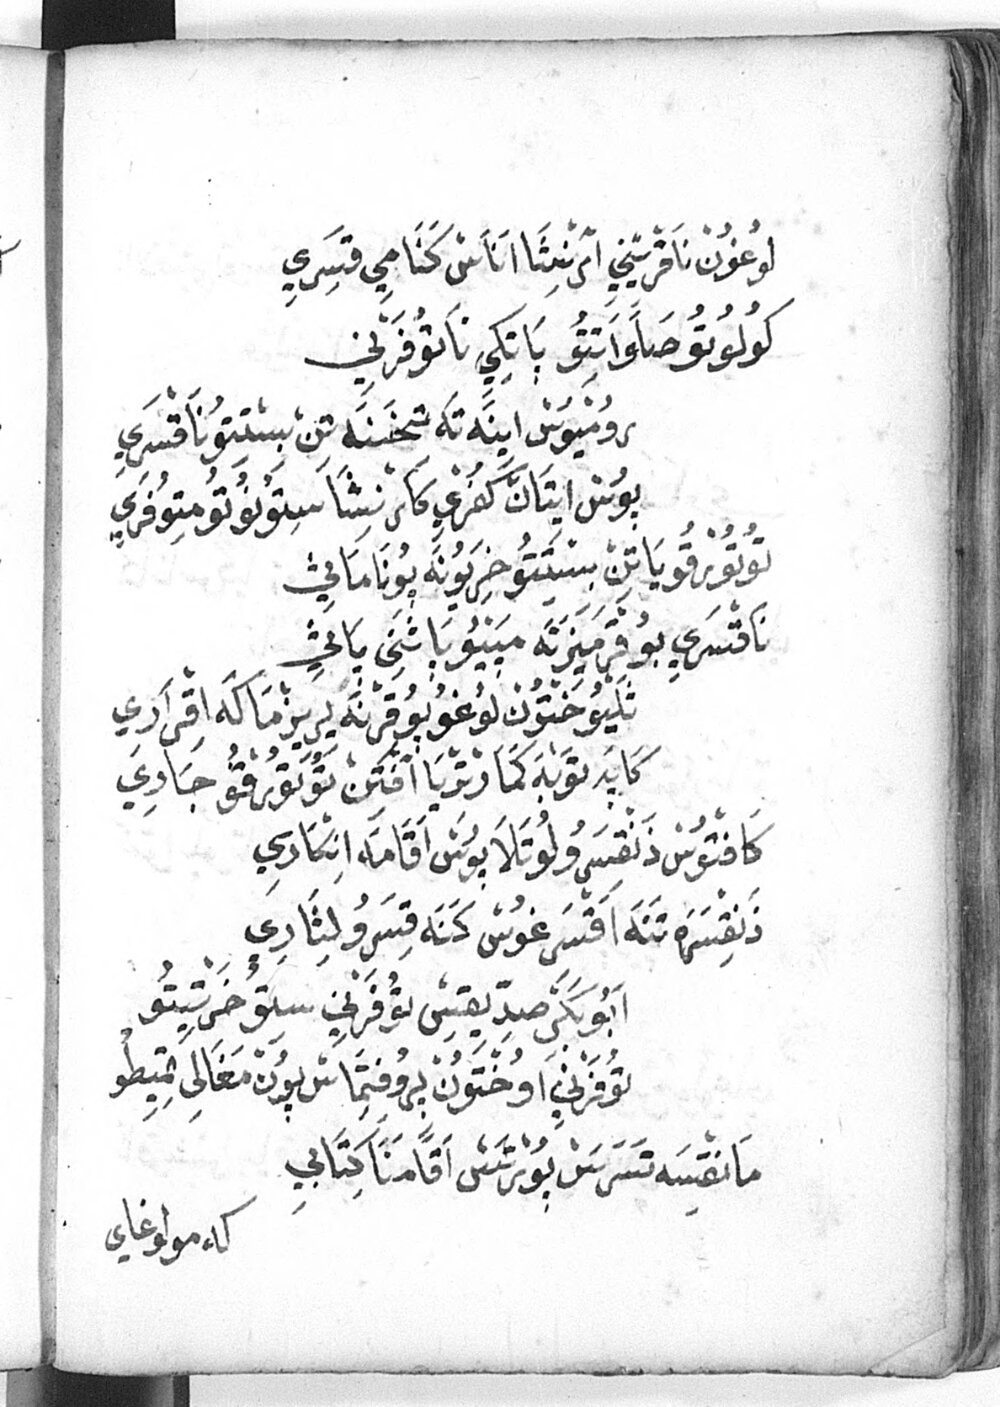 لوُغوُنْ نَاقْرَشْنِي اَمْرَنْشَا اَنَاسْ كَنَامِي قِسَرِي
كوُلوُتوُ صَلَوَاتِتوُ پَاتِكِي نَاتوُفَرَنِي
رومْيوُسْ اِينَه تَه شَخَنَه تِنْ پِسْتِتوُ نَاقْسَرِي
پوُسْ اِيتَانْ كَفُرِي كَامْرَنِشَا سِتوُنوُتوُ مِتوُفَرِي
توُتوُرْقوُيَا تِنْ پِسْتِتوُ خِرِيوُنَه پوُنَامَاثِي
نَاقْسَرِي پوُ قِرْمِيزَتَه مِپِيوُ پَاشَخِي يَاثِي
تَلِيوُ خْتوُنْ لوُغوُپوُ قِرْنَه پِرِيزْمَا كَه اِقْرَارِي
كَاپَه توَبَه كَمَا رْتِرِيَا اَفْكِنْ توُتوُرْقوُ جَبَارِي
كَافْتوُسْ ذَنْقِسَرِ وُلوُتَلَا پوُسْ اَقَامَه اِنْكَارِي
ذَنْقِسَرَه تَنَه اَقْسَرِ غوُسْ كَنَه قِسَرِ وُلِثَارِي
اَبوُبَكَرْ صِدِّيقِسْ توُفَرْنِي سِتوُ خَرْتِيتوُ
توُفَرْنِي اوُخْتوُنْ پِروُفِتِمَاسْ پوُنْ مَغَالِي تِمِيطوُ
مَانَقِسَه تَسَرَسْ پوُرْتَسْ اَقَامْنَا كِتَاپِي
كاء مولوغاي